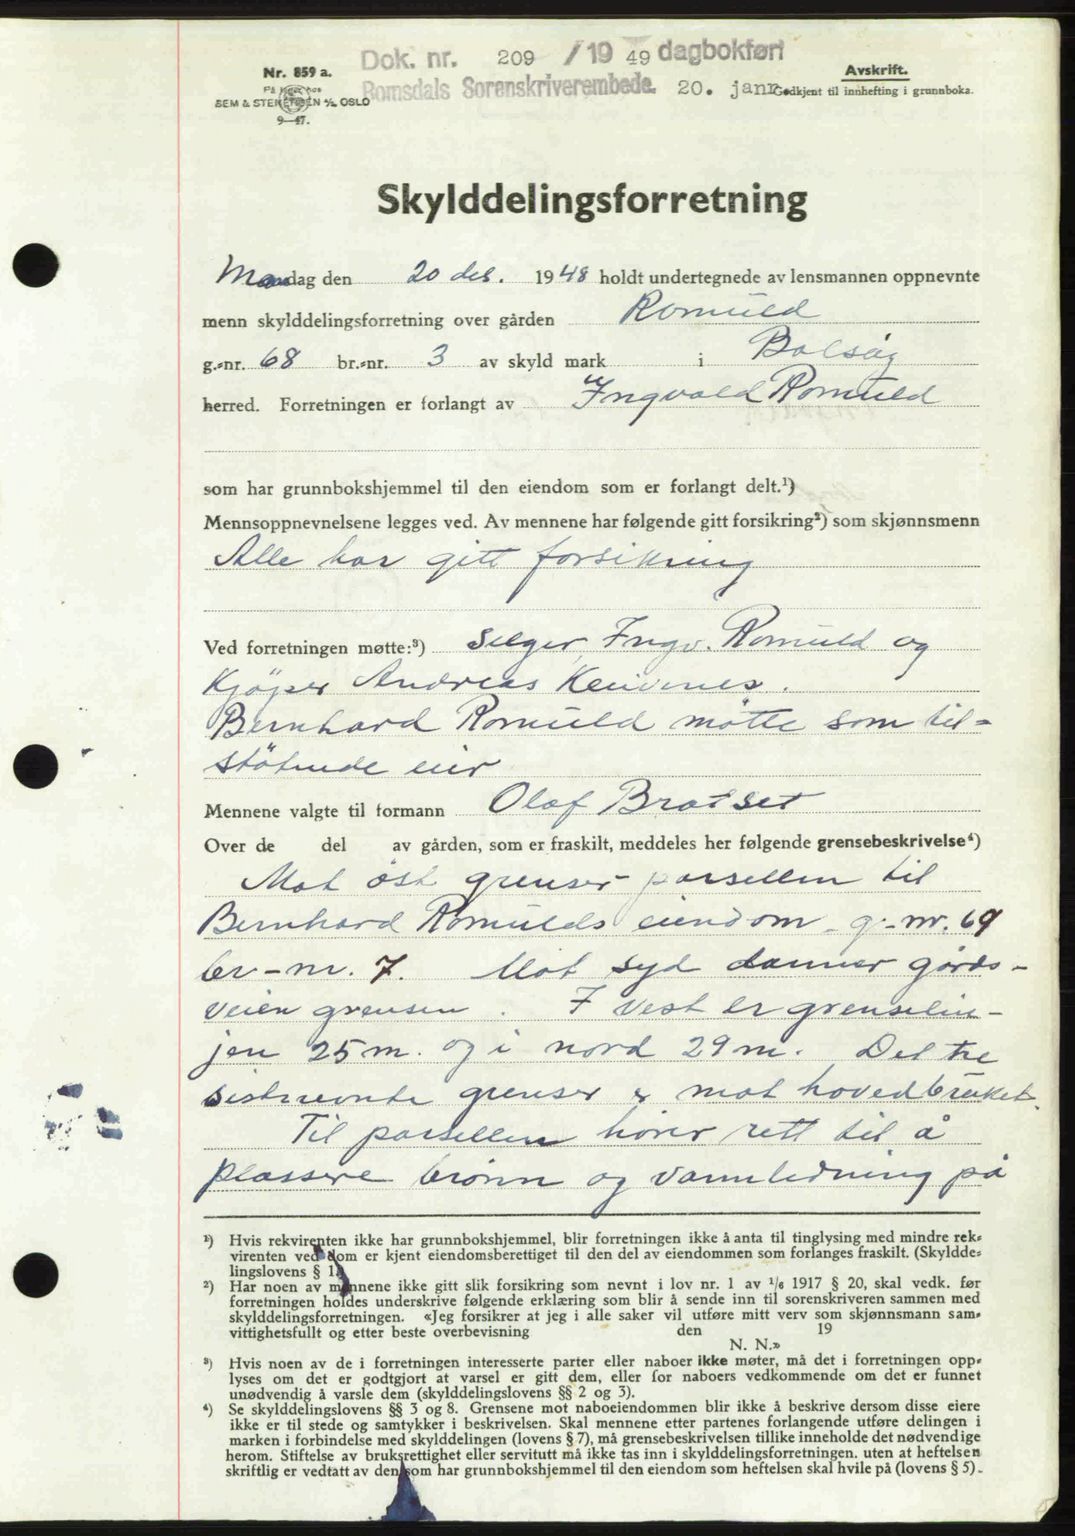 Dok. nr. 209 / 19 49 dagbokført
Romsdals Sorenskriverembede. 20. janr.
Nr. 859 a.
På lager hos
SEM & STENERSEN A/S, OSLO
9—47.
Avskrift.
Godkjent til innhefting i grunnboka.
Skylddelingsforretning
Mandag den 20 des. 1948 holdt undertegnede av lensmannen oppnevnte
menn skylddelingsforretning over gården Romuld
g.-nr. 68 br.-nr. 3 av skyld mark i Bolsøy
herred. Forretningen er forlangt av Ingvald Romuld
som har grunnbokshjemmel til den eiendom som er forlangt delt.¹)
Mennsoppnevnelsene legges ved. Av mennene har følgende gitt forsikring²) som skjønnsmenn
Alle har gitt forsikring
Ved forretningen møtte:³) Selger, Ingv. Romuld og
Kjøper Andreas
Bernhard Romuld møtte som til-
støtende eier
Mennene valgte til formann Olaf Bratset
Over de del av gården, som er fraskilt, meddeles her følgende grensebeskrivelse⁴)
Mot øst grenser parsellen til
Bernhard Romulds eiendom g.-nr. 69
br-nr. 7. Mot syd danner gårds-
veien grensen. I vest er grenselin-
jen 25 m. og i nord 29 m. Det tre
sistnevnte grenser er mot hovedbruket.
Til parsellen hører rett til å
plassere brønn og vannledning på
¹) Hvis rekvirenten ikke har grunnbokshjemmel, blir forretningen ikke å anta til tinglysing med mindre rek-
virenten ved dom er kjent eiendomsberettiget til den del av eiendommen som forlanges fraskilt. (Skyldde-
lingslovens § 1.)
²) Har noen av mennene ikke gitt slik forsikring som nevnt i lov nr. 1 av 1/6 1917 § 20, skal vedk. før
forretningen holdes underskrive følgende erklæring som blir å sende inn til sorenskriveren sammen med
skylddelingsforretningen. «Jeg forsikrer at jeg i alle saker vil utføre mitt verv som skjønnsmann sam-
vittighetsfullt og etter beste overbevisning den 19
N. N.»
³) Hvis noen av de i forretningen interesserte parter eller naboer ikke møter, må det i forretningen opp-
lyses om det er godtgjort at varsel er gitt dem, eller for naboers vedkommende om det er funnet
unødvendig å varsle dem (skylddelingslovens §§ 2 og 3).
⁴) Se skylddelingslovens §§ 3 og 8. Grensene mot naboeiendommen blir ikke å beskrive dersom disse eiere
ikke er til stede og samtykker i beskrivelsen. Skal mennene etter partenes forlangende utføre delingen i
marken i forbindelse med skylddelingen (lovens § 7), må grensebeskrivelsen tillike inneholde det nødvendige
herom. Stiftelse av bruksrettighet eller servitutt må ikke tas inn i skylddelingsforretningen, uten at heftelsen
skriftlig er vedtatt av den som har grunnbokshjemmel til den eiendom som heftelsen skal hvile på (lovens § 5).